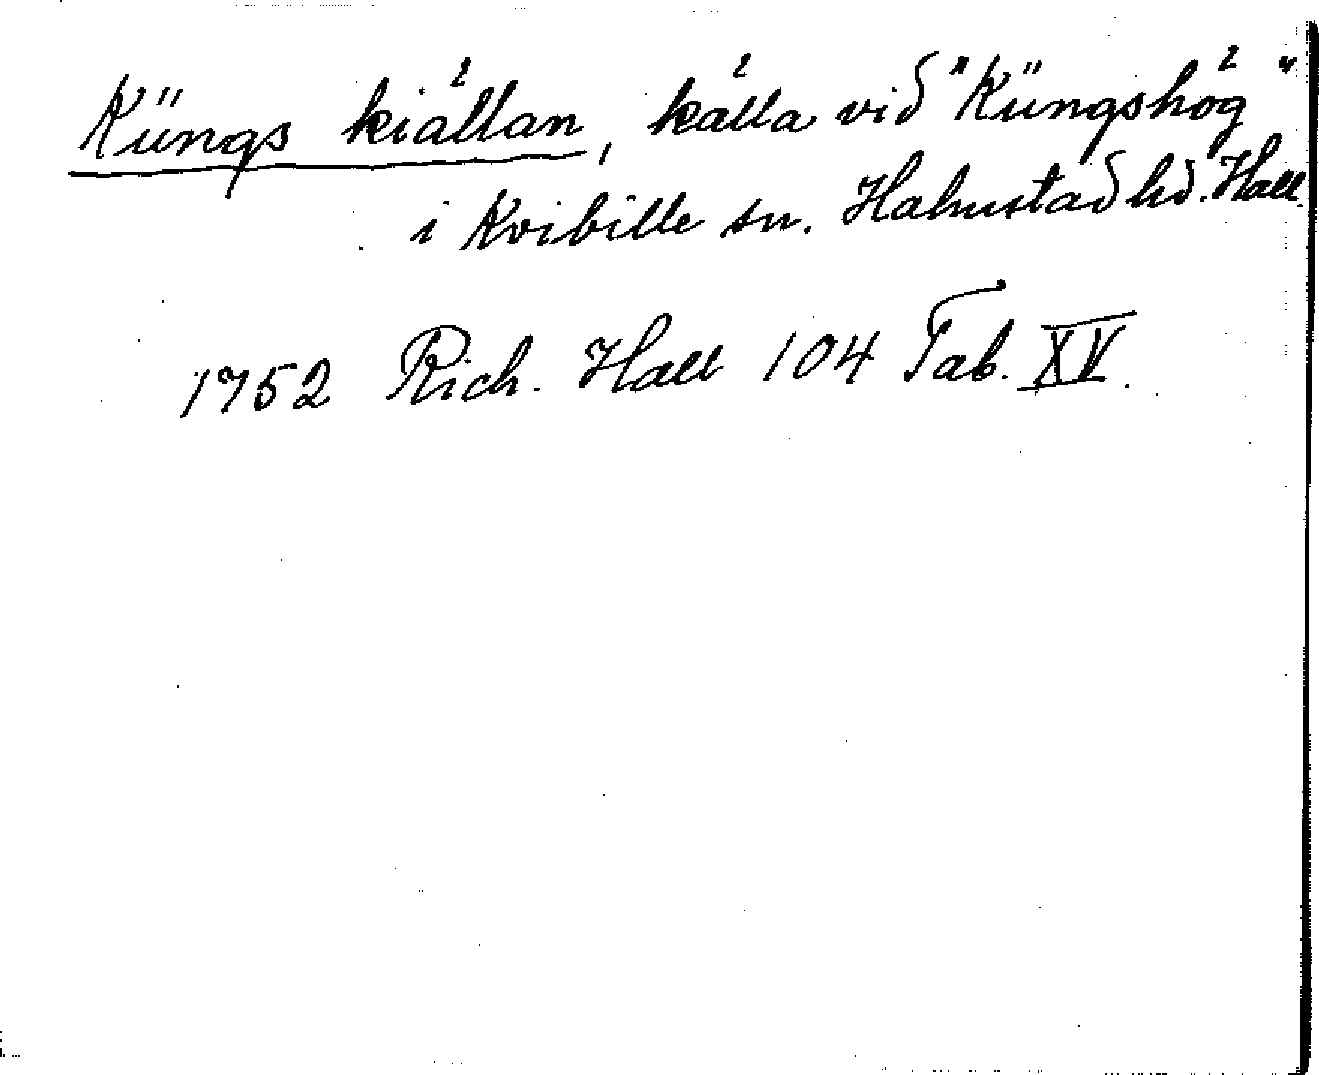 Küngs kiällan, källa við "Küngshög"
i Kvibille sn. Halmstað hð. Hall.
1752 Rich. Hall 104 Tab. XV.